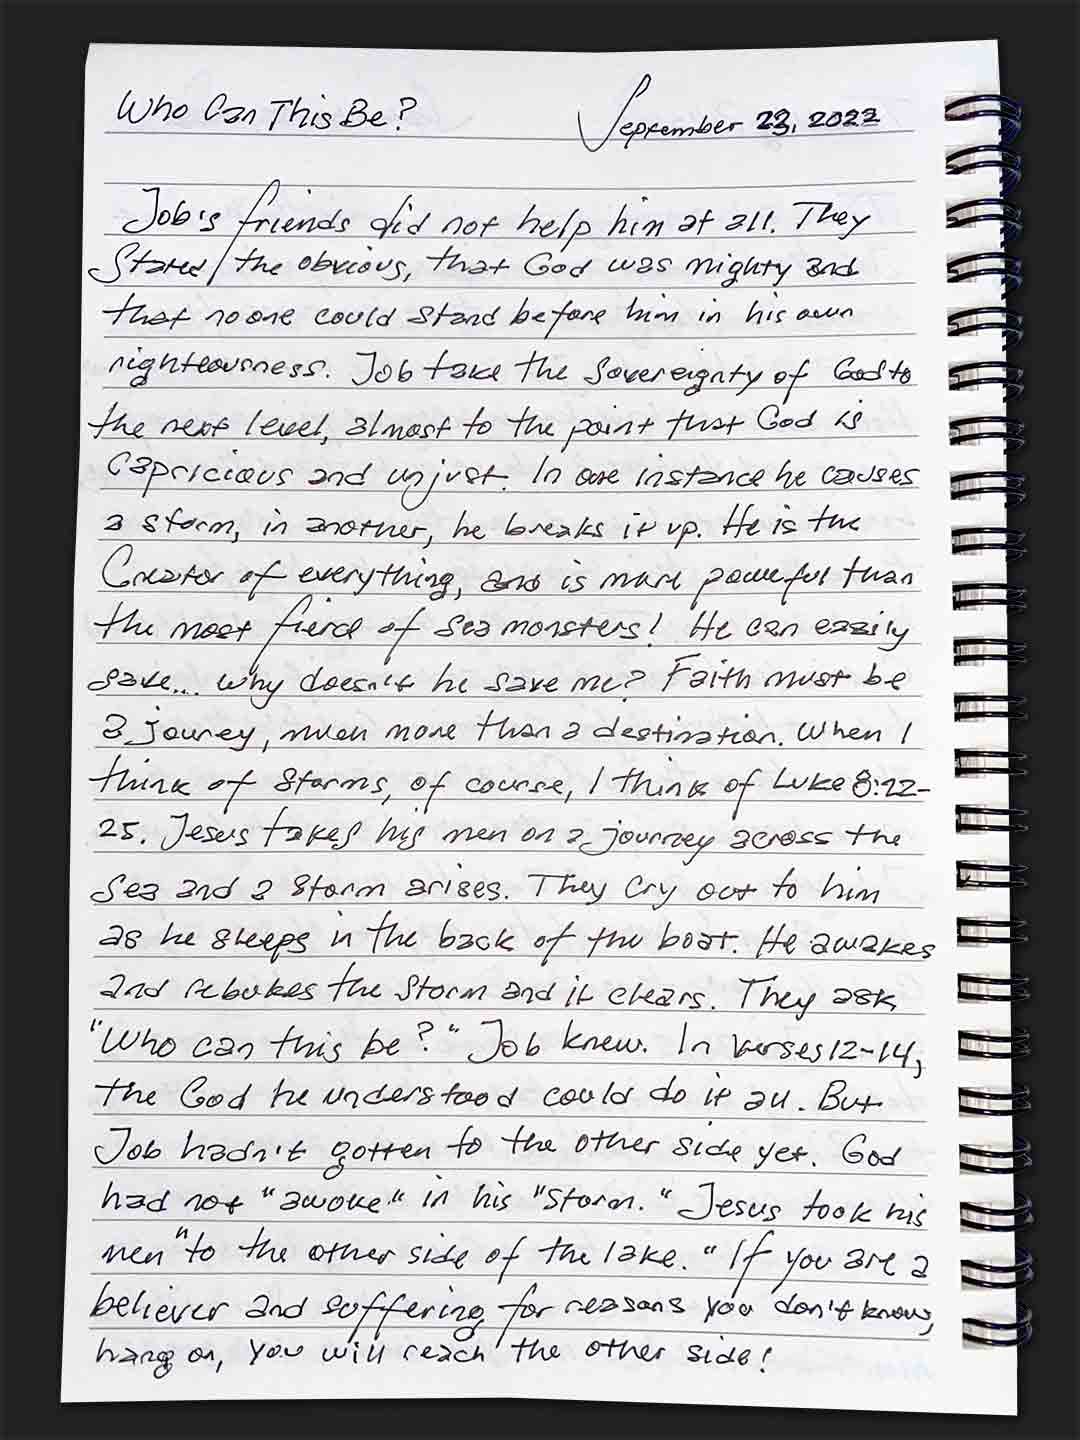 Who Can This Be?
September 23, 2023
Job's friends did not help him at all. They
Stated the obvious, that God was mighty and
that no one could stand before him in his own
righteousness. Job take the Sovereignty of God to
the next level, almost to the point that God is
Capricious and unjust. In one instance he causes
a storm, in another, he breaks it up. He is the
Creator of everything, and is more powerful than
the most fierce of sea monsters! He can easily
save... Why doesn't he save me? Faith must be
a jouney, much more than a destination. When I
think of Storms, of course, I think of Luke 8:22-
25. Jesus takes his men on a journey across the
Sea and a Storm arises. They Cry out to him
as he sleeps in the back of the boat. He awakes
and rebukes the Storm and it clears. They ask,
"Who can this be?" Job knew. In Verses 12-14,
the God he understood could do it all. But
Job hadn't gotten to the other side yet. God
had not "awoke" in his "Storm." Jesus took his
men "to the other side of the lake." If you are a
believer and suffering for reasons you don't know,
hang on, you will reach the other side!